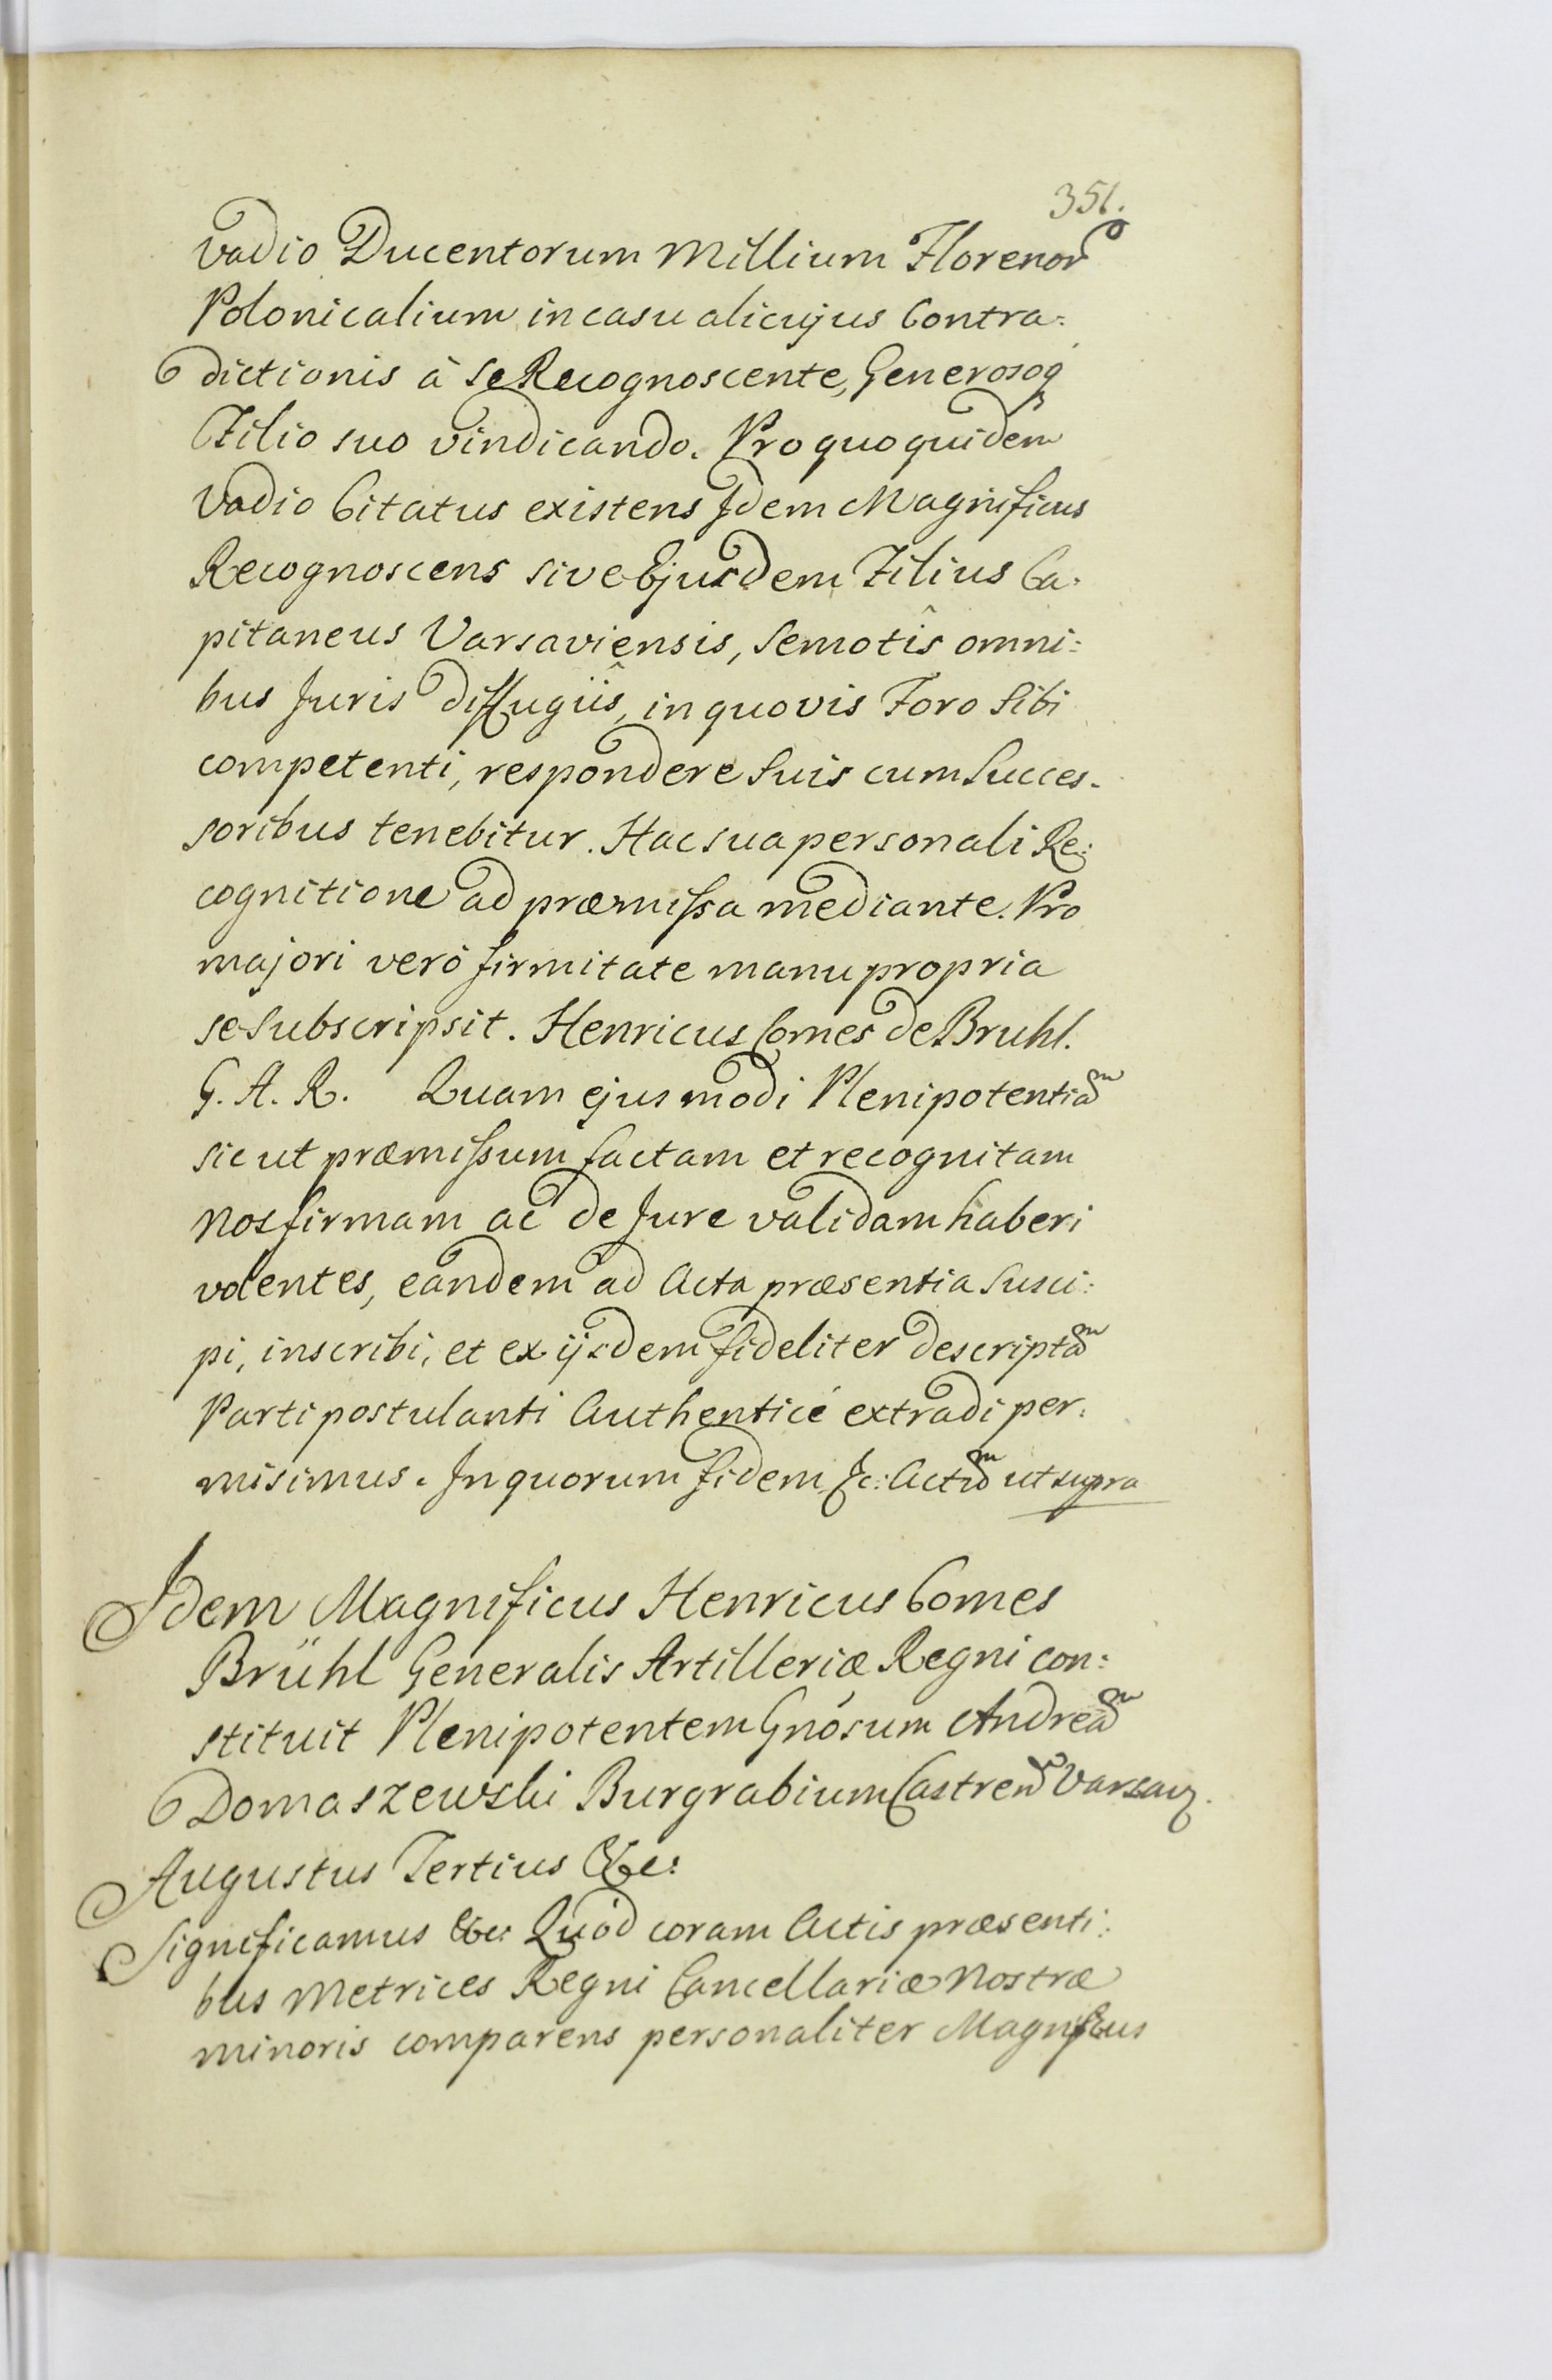 351.
Vadio Ducentorum Millium Florenor
Polonicalium in casu alicujus Contra:
dictionis à Se Recognoscente, Generosoq
Filio suo vindicando. Pro quo quidem
Vadio Citatus existens Idem Magnificus
Recognoscens sive Ejusdem Filius Ca:
pitaneus Varsaviensis, Semotîs omni:
bus Juris diffugiîs, in quovis Foro Sibi
competenti, respondere Suis cum Succes-
soribus tenebitur. Hac sua personali Re:
cognitione ad præmissa mediante. Pro
majori verò firmitate manu propria
se Subscripsit. Henricus Comes de Bruhl.
G. A. R. Quam ejusmodi Plenipotentiam
sicut præmissum factam et recognitam
Nos firmam ac de Jure validam haberi
volentes, eandem ad Acta præsentia Susci:
pi, inscribi, et ex ijsdem fideliter descriptam
Parti postulanti Authenticé extradi per:
misimus. In quorum fidem &c: Actum ut supra
Idem Magnificus Henricus Comes
Brühl Generalis Artilleriæ Regni con:
stituit Plenipotentem Gnósum Andream
Domaszewski Burgrabium Castren Varsav.
Augustus Tertius &c:
Significamus &c: Quòd coram Actis præsenti:
bus Metrices Regni Cancellariæ Nostræ
minoris comparens personaliter Magnificus